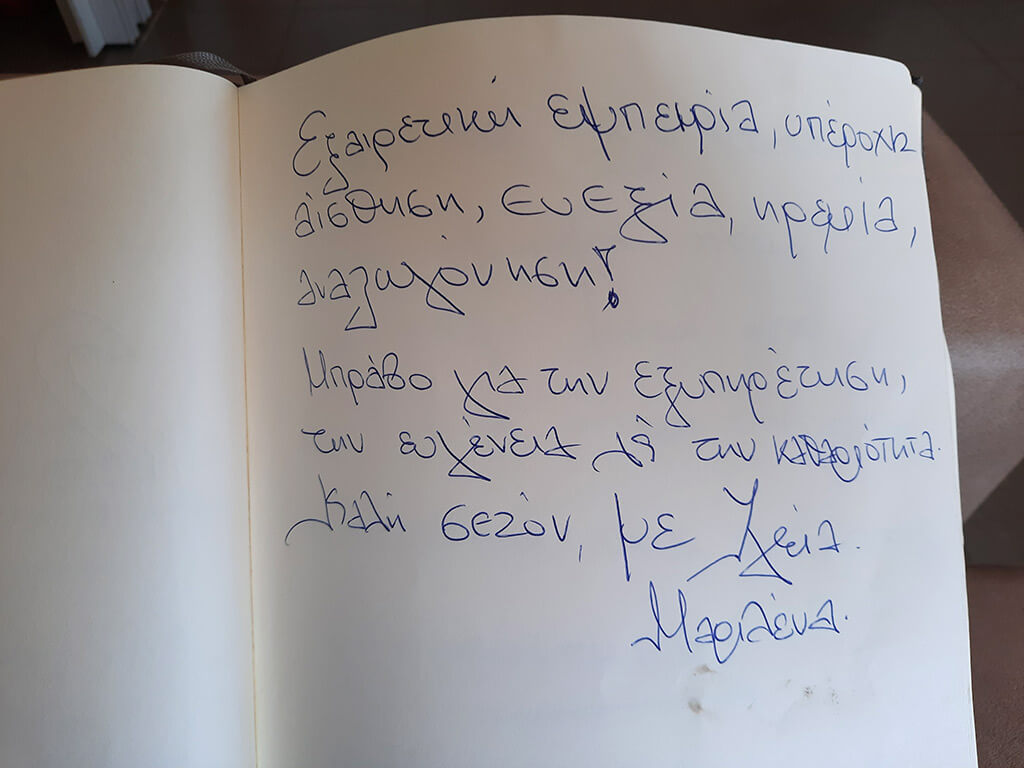 Εξαιρετική εμπειρία, υπέροχη
αίσθηση, ευεξία, ηρεμία,
αναζωογόνηση!
Μπράβο για την εξυπηρέτηση,
την ευγένεια & την καθαριότητα.
Καλή σεζόν, με υγεία.
Μαριλένα.